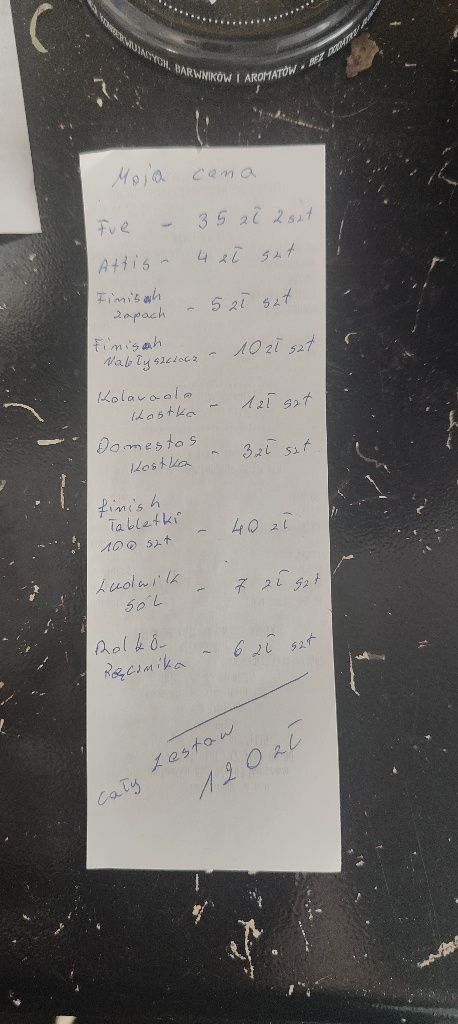 KONSERWUJĄCYCH, BARWNIKÓW I AROMATÓW • BEZ DODATKU
Moja cena
Fve - 35 zł 2 szt
Attis - 4 zł szt
Finish
zapach - 5 zł szt
Finish
Nabłyszczacz - 10 zł szt
Kolorado
Kostka - 1 zł szt
Domestos
Kostka - 3 zł szt
finish
Tabletki
100 szt - 40 zł
Ludwik
Sól - 7 zł szt
Rolka
Ręcznika - 6 zł szt
cały zestaw
120 zł